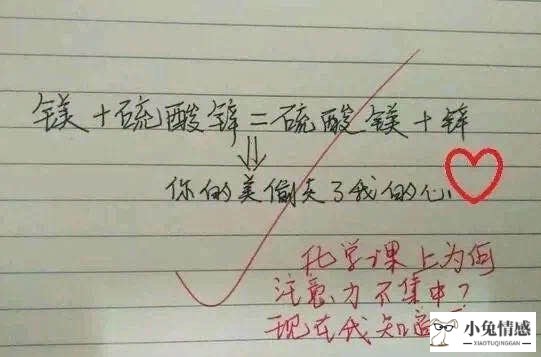 镁+硫酸锌=硫酸镁+锌
你的美偷走了我的心
化学课上为何
注意力不集中?
现在我知道了
小兔情感
XIAOTUQINGGAN